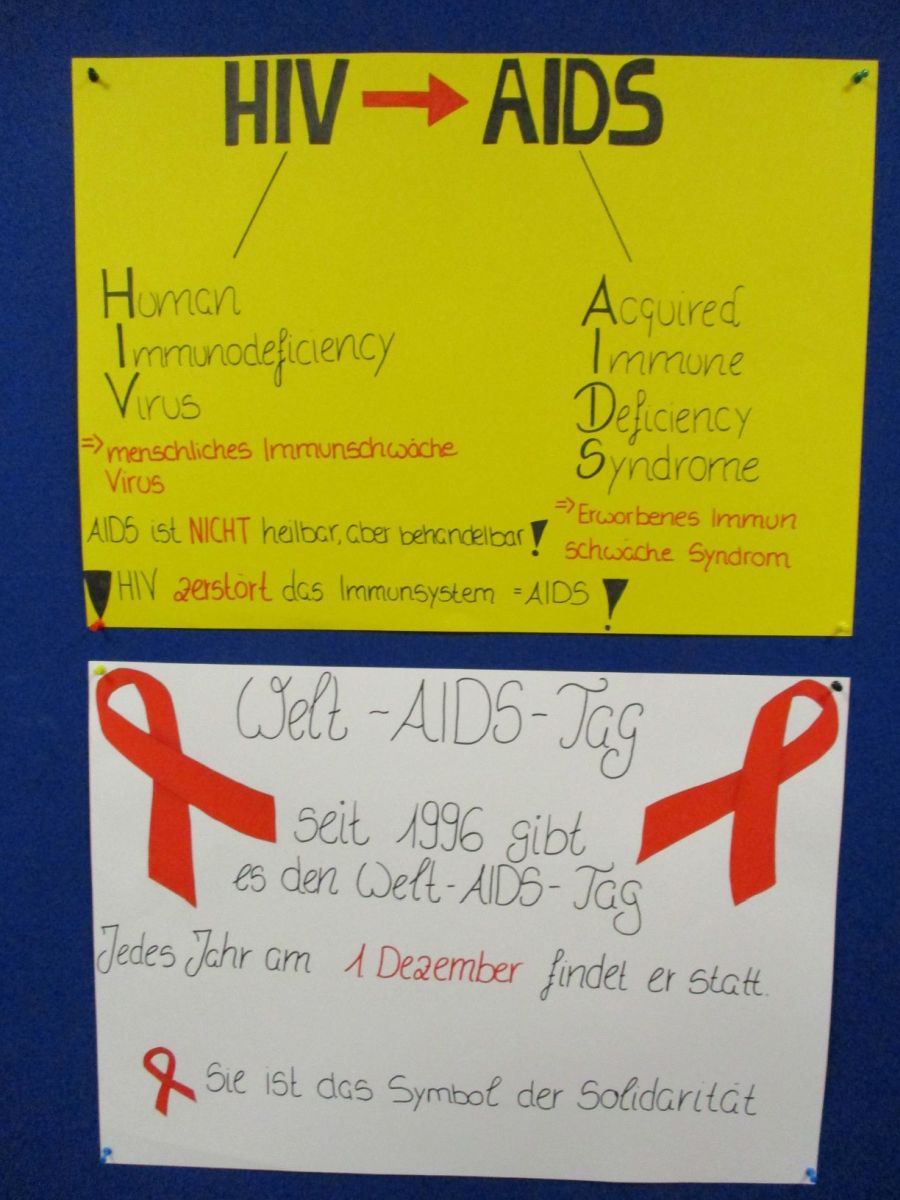 HIV → AIDS
Human
Immunodeficiency
Virus
=> menschliches Immunschwäche
Virus
Acquired
Immune
Deficiency
Syndrome
=> Erworbenes Immun
schwäche Syndrom
AIDS ist NICHT heilbar, aber behandelbar!
! HIV zerstört das Immunsystem = AIDS !
Welt-AIDS-Tag
seit 1996 gibt
es den Welt-AIDS-Tag
Jedes Jahr am 1 Dezember findet er statt.
Sie ist das Symbol der Solidarität